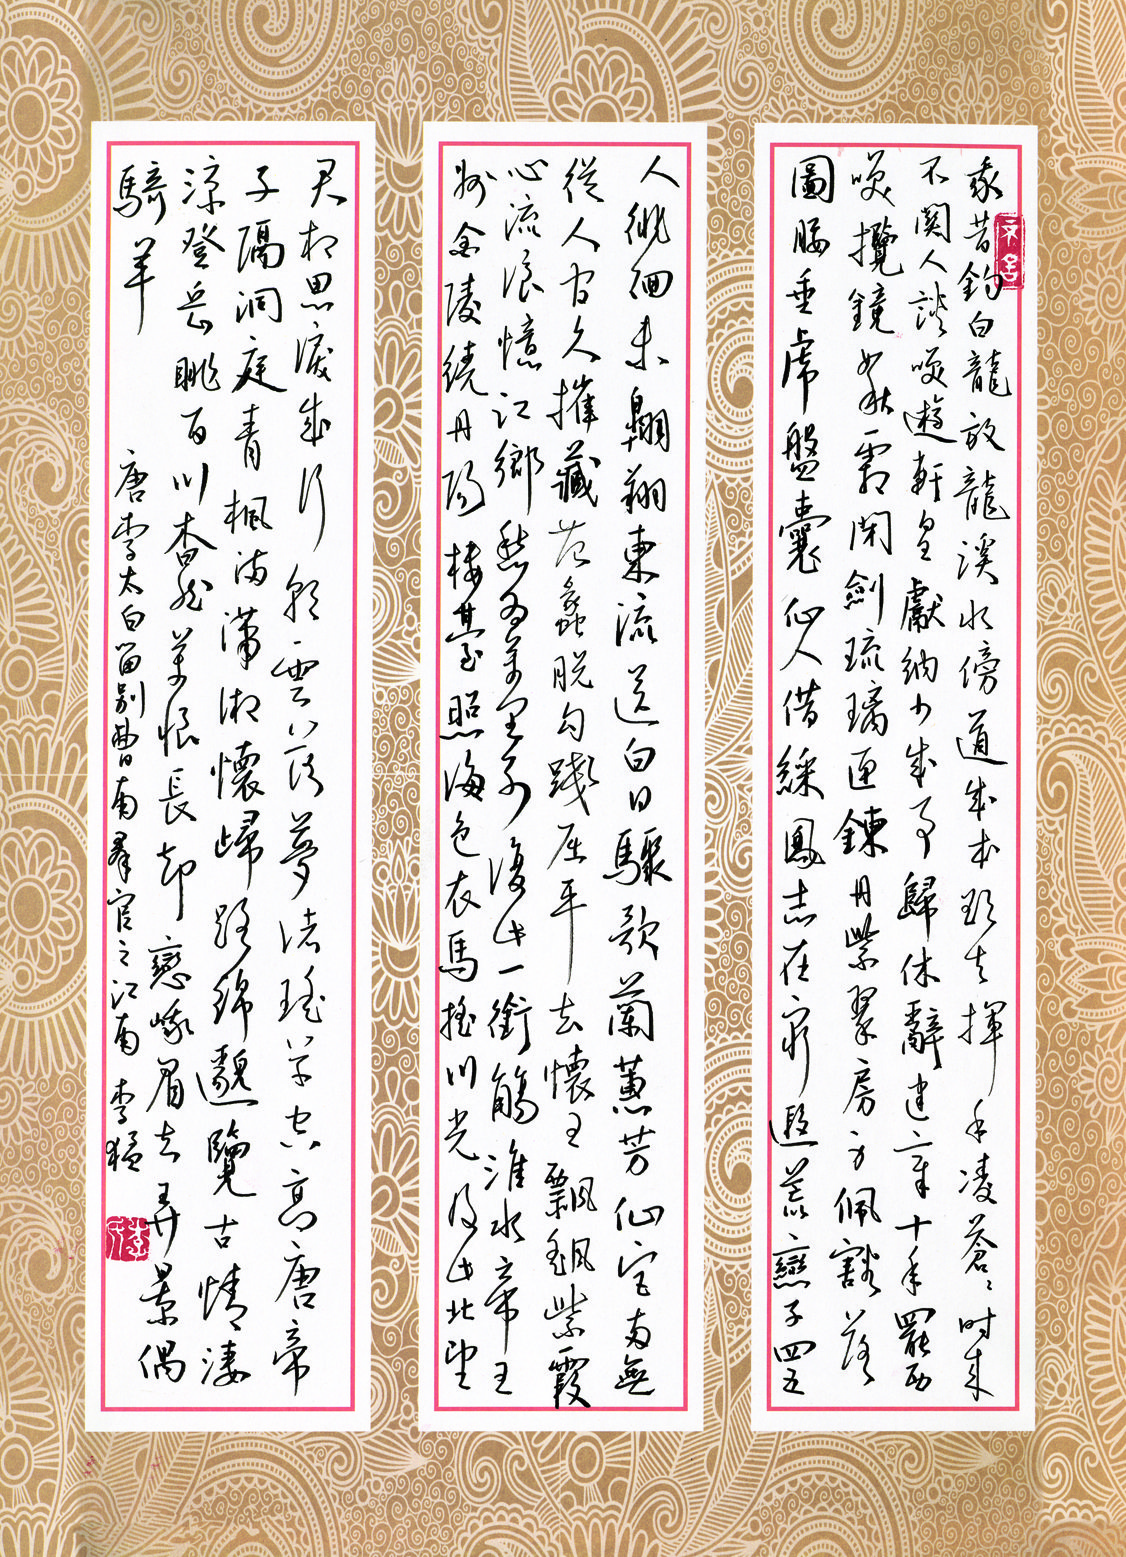 我昔釣白龍放龍溪水傍道成本欲去揮手凌蒼〻時來
不關人談笑遊軒皇獻納少成事歸休辭建章十年罷西
笑攬鏡如秋霜閑劍琉璃匣鍊丹紫翠房身佩豁落
圖腰垂虎盤囊仙人借綵鳳志在窮遐荒戀子四五
人徘徊未翱翔東流送白日驟歌蘭蕙芳仙宮兩無
從人間久摧藏范蠡脫勾踐屈平去懷王飄颻紫霞
心流浪憶江鄉愁為萬里別復此一銜觴淮水帝王
州金陵繞丹陽樓臺照海色衣馬搖川光及此北望
君相思淚成行朝雲落夢渚瑤草空高唐帝
子隔洞庭青楓滿瀟湘懷歸路綿邈覽古情淒
涼登岳眺百川杳然萬恨長却戀峨眉去弄景偶
騎羊
唐李太白留别曹南羣官之江南 李猛